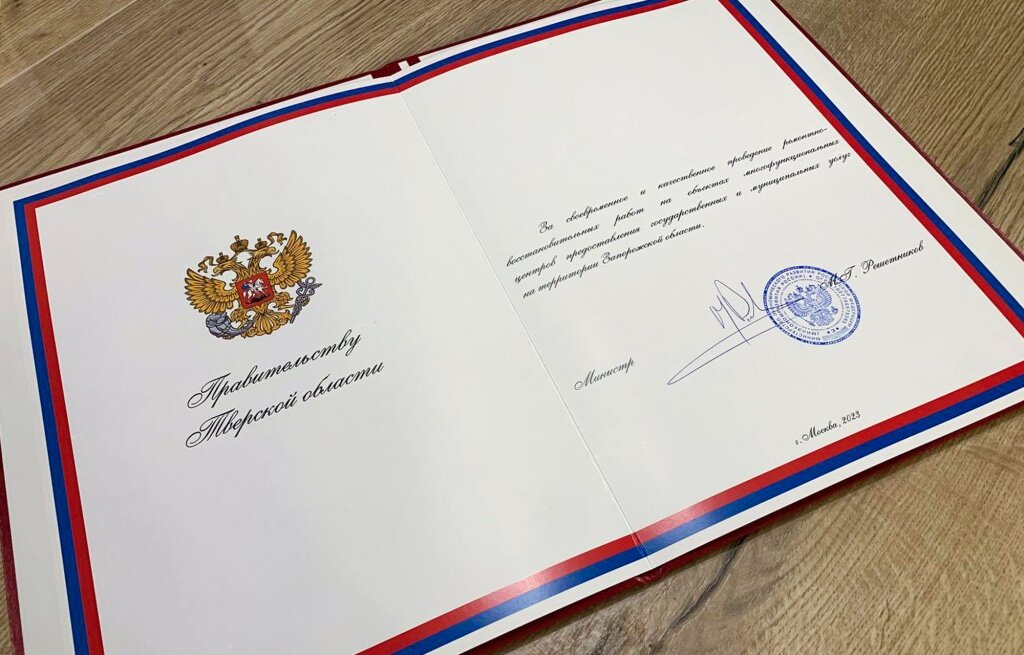 Правительству
Тверской области
За своевременное и качественное проведение ремонтно-
восстановительных работ на объектах многофункциональных
центров предоставления государственных и муниципальных услуг
на территории Запорожской области.
Министр
М.Г. Решетников
г. Москва, 2023